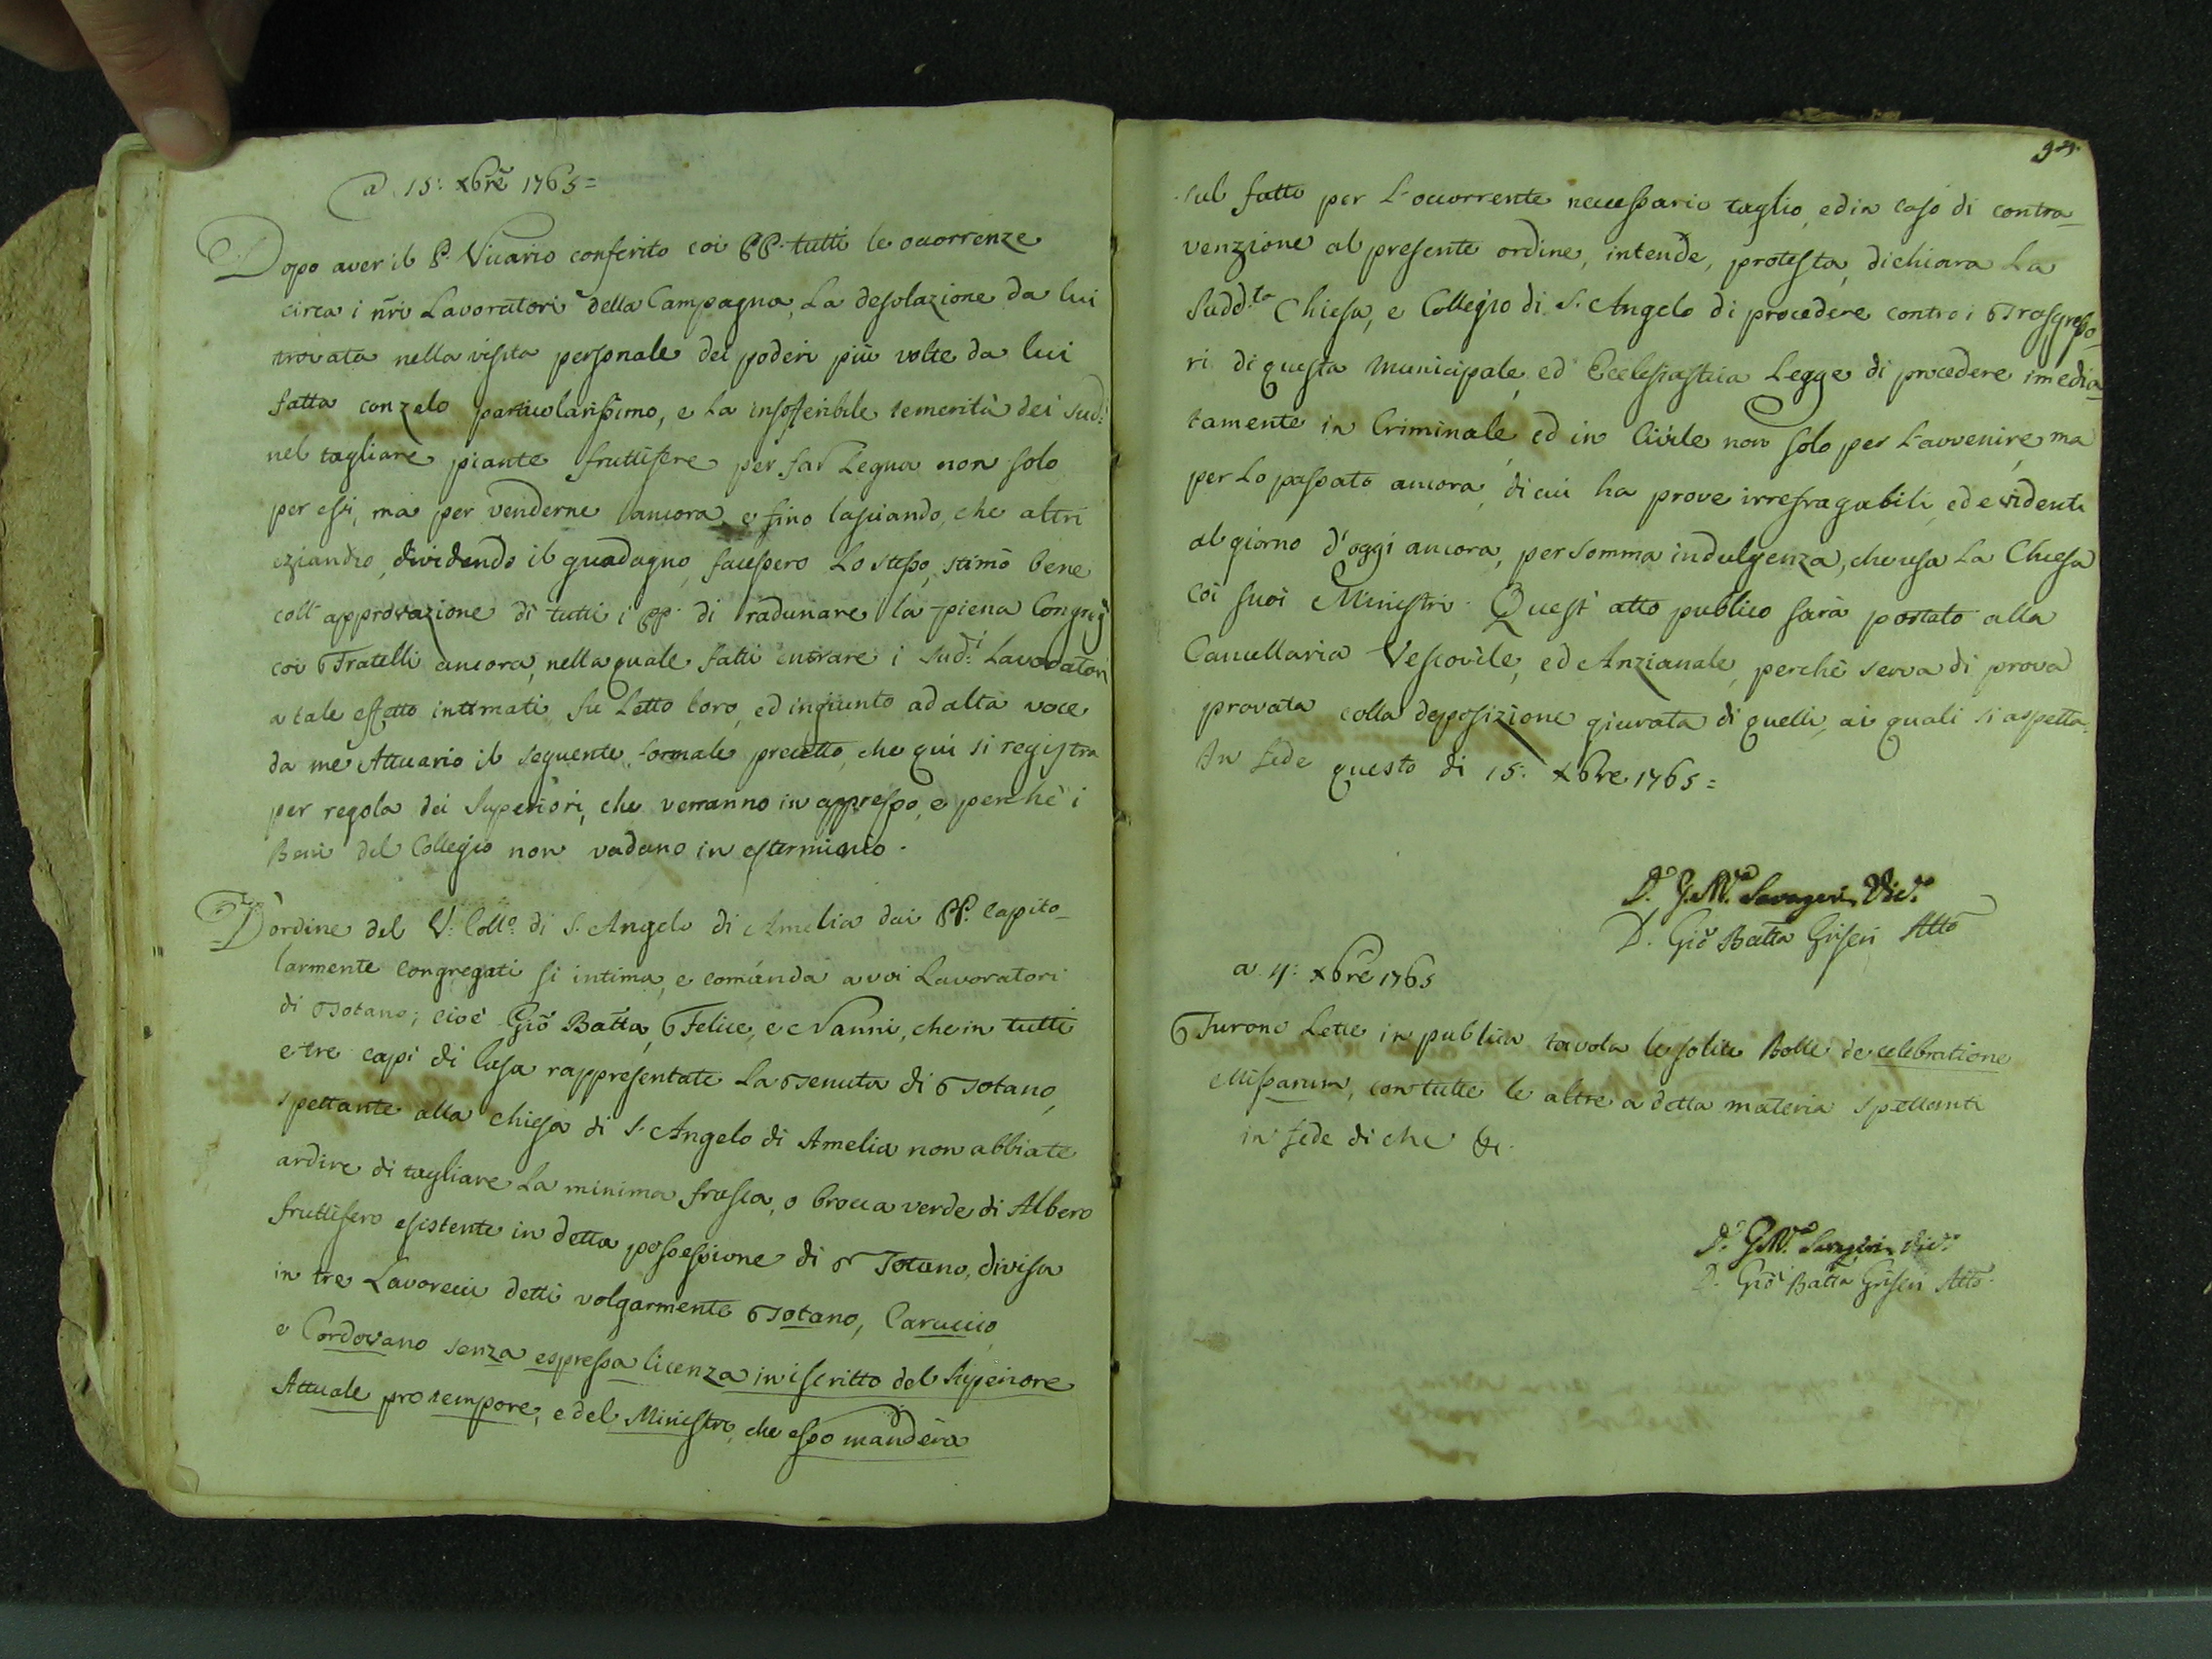 a 15: xbre 1765=
Dopo aver il P. Vicario conferito coi PP. tutti le occorrenze
circa i nri Lavoratori della Campagna, La desolazione da lui
trovata nella visita personale dei poderi più volte da lui
fatta con zelo particolarissimo, e La insofferibile temerità dei Sud.i
nel tagliare piante fruttifere per far Legna non solo
per essi, ma per venderne ancora, e fino lasciando, che altri
eziandio, dividendo il guadagno, facessero Lo stesso, stimò bene
coll'approvazione di tutti i PP. di radunare la piena Congreg.
coi Fratelli ancora, nella quale fatti entrare i Sud.i Lavoratori
a tale effetto intimati, fu Letto loro, ed ingiunto ad alta voce
da me Attuario il seguente formale precetto, che quì si registra
per regola dei Superiori, che verranno in appresso, e perchè i
Beni del Collegio non vadano in esterminio.
D'ordine del V. Coll.o di S. Angelo di Amelia dai PP. Capito-
larmente congregati si intima, e comanda a voi Lavoratori
di Totano; cioè Giò Batta, Felice, e Nanni, che in tutti
e tre capi di Casa rappresentate La Tenuta di Totano,
spettante alla Chiesa di S. Angelo di Amelia non abbiate
ardire di tagliare La minima frasca, o brocca verde di Albero
fruttifero esistente in detta possessione di Totano, divisa
in tre Lavorecci detti volgarmente Totano, Caruccio,
e Cordovano senza espressa licenza in iscritto del Superiore
Attuale pro tempore, e del Ministro, che esso manderà
94.
sul fatto per L'occorrente necessario taglio, ed in caso di contra-
venzione al presente ordine, intende, protesta, dichiara La
Sudd.ta Chiesa, e Collegio di S. Angelo di procedere contro i Trasgresso-
ri di questa Municipale, ed Ecclesiastica Legge di procedere imedia-
tamente in Criminale, ed in Civile non solo per L'avvenire, ma
per Lo passato ancora, di cui ha prove irrefragabili, ed evidenti
al giorno d'oggi ancora, per somma indulgenza, che usa La Chiesa
coi suoi Ministri. Quest'atto publico sarà portato alla
Cancellaria Vescovile, ed Anzianale, perchè serva di prova
provata colla deposizione giurata di quelli, ai quali si aspetta.
In fede questo di 15: xbre 1765=
D. G. M.a Savageri Vic.o
D. Giò Batta Griseri Att.o
a 4: xbre 1765
Furono Lette in publica tavola le solite Bolle de celebratione
Missarum, con tutte le altre a detta materia spettanti
in fede di che &c.
D. G. M.a Savageri Vic.o
D. Giò Batta Griseri Att.o